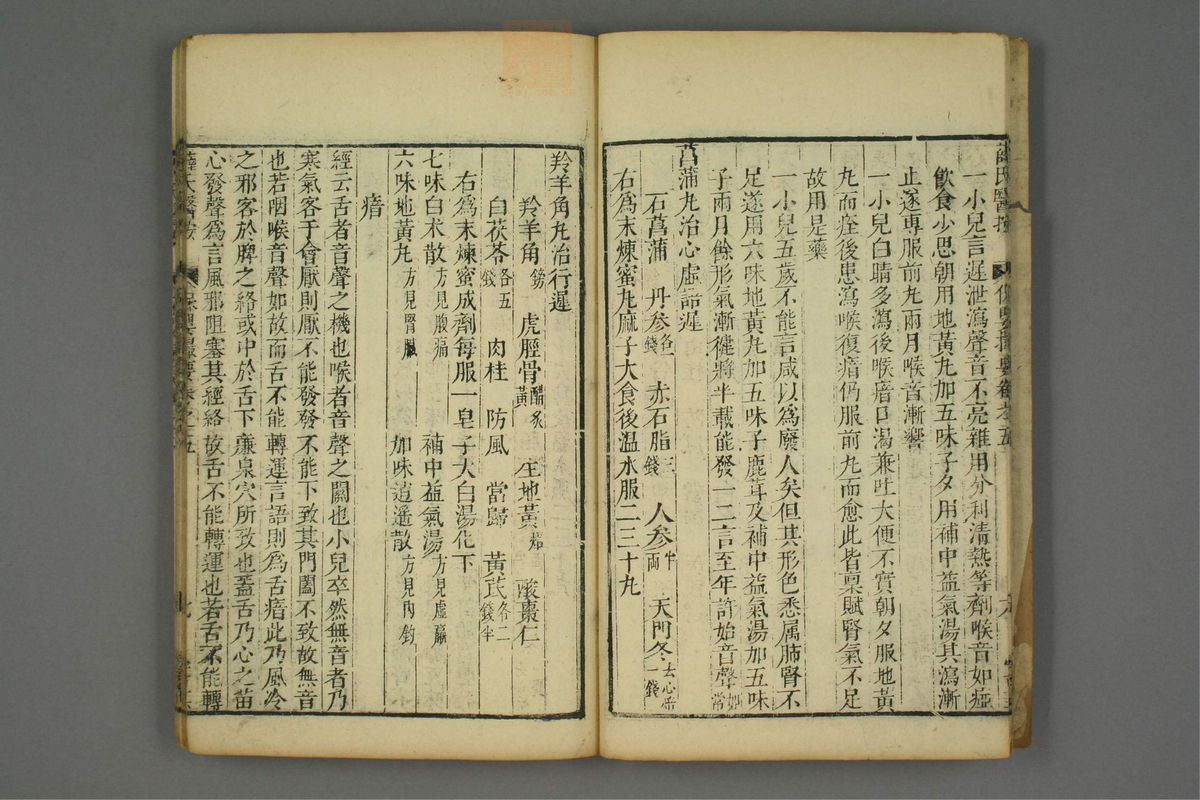 薛氏醫按 保嬰撮要卷之五
一小兒言遲泄瀉聲音不亮雜用分利清熱等劑喉音如瘂
飲食少思朝用地黃丸加五味子夕用補中益氣湯其瀉漸
止遂專服前丸兩月喉音漸響
一小兒白睛多瀉後喉瘖口渴兼吐大便不實朝夕服地黃
丸而痊後患瀉喉復瘖仍服前丸而愈此皆稟賦腎氣不足
故用是藥
一小兒五歲不能言咸以為廢人矣但其形色悉属肺腎不
足遂用六味地黃丸加五味子鹿茸及補中益氣湯加五味
子兩月餘形氣漸健將半載能發一二言至年許始音聲如常
菖蒲丸治心虛語遲
石菖蒲 丹參各二錢 赤石脂三錢 人參半兩 天門冬去心焙一錢
右為末煉蜜丸麻子大食後温水服二三十丸
羚羊角丸治行遲
羚羊角鎊 虎脛骨醋炙黃 生地黃焙 酸棗仁
白茯苓各五錢 肉桂 防風 當歸 黃芪各二錢半
右為末煉蜜成劑每服一皂子大白湯化下
七味白术散方見腹痛 補中益氣湯方見虛羸
六味地黃丸方見腎臟 加味逍遥散方見內釣
瘖
經云舌者音聲之機也喉者音聲之關也小兒卒然無音者乃
寒氣客于會厭則厭不能發發不能下致其門闔不致故無音
也若咽喉音聲如故而舌不能轉運言語則為舌瘖此乃風冷
之邪客於脾之絡或中於舌下廉泉穴所致也盖舌乃心之苗
心發聲為言風邪阻塞其經絡故舌不能轉運也若舌不能轉
薛氏醫按 保嬰撮要卷之五